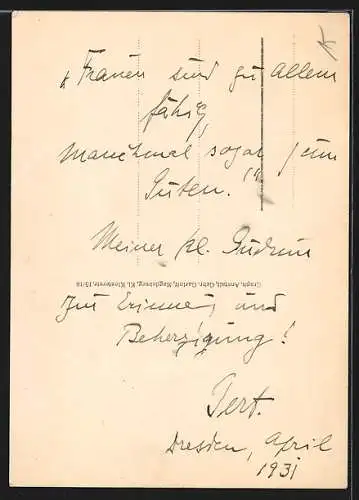 „Frauen sind zu allem
fähig,
manchmal sogar zum
Guten.“
Meiner kl. Gudrun
Zur Erinner. und
Beherzigung!
Gert.
Dresden, April
1931
Graph. Anstalt, Gebr. Garloff, Magdeburg, Kl. Klosterstr. 15/16